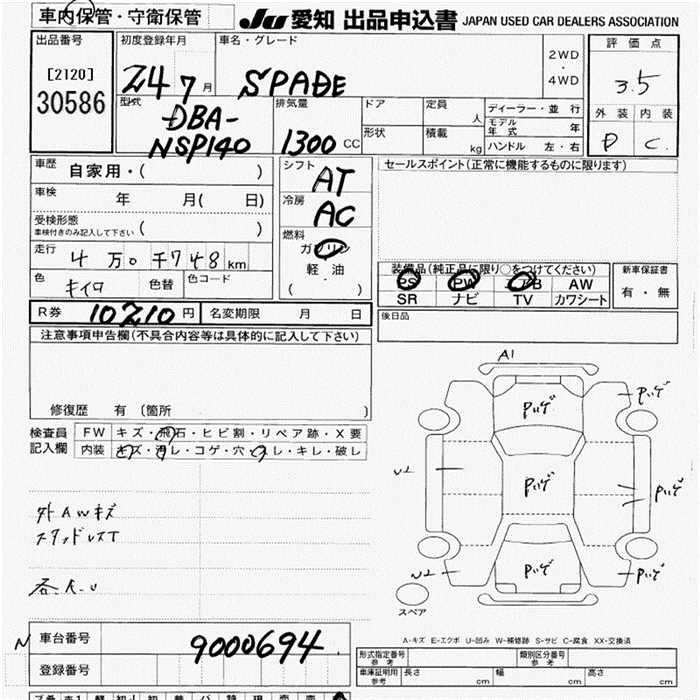 車内保管・守衛保管
JU 愛知 出品申込書 JAPAN USED CAR DEALERS ASSOCIATION
出品番号
[2120]
30586
初度登録年月
24 7 月
車名・グレード
SPADE
2WD
・
4WD
評価点
3.5
外装 内装
D C
型式
DBA-
NSP140
排気量
1300 CC
ドア
形状
定員
人
積載
kg
ディーラー・並行
モデル年式 年
ハンドル 左・右
車歴 自家用・( )
車検 年 月( 日)
受検形態
車検付きのみ記入して下さい ( )
走行 4 万 0 千 7 4 8 km
色 キイロ 色替 色コード
シフト
AT
冷房
AC
燃料
ガソリン
軽油
( ・ )
セールスポイント(正常に機能するものに限ります)
装備品(純正品に限り○をつけてください)
PS PW AB AW
SR ナビ TV カワシート
新車保証書
有・無
R券 10210 円 名変期限 月 日
後日品
注意事項申告欄(不具合内容等は具体的に記入して下さい)
修復歴 有(箇所 )
検査員
記入欄
FW キズ・飛石・ヒビ割・リペア跡・X要
内装 キズ・汚レ・コゲ・穴・スレ・キレ・破レ
外AWキズ
スタッドレスT
各A.U
A1
Pハゲ
Pハゲ
Pハゲ
Pハゲ
Pハゲ
Pハゲ
スペア
A-キズ E-エクボ U-凹み W-補修跡 S-サビ C-腐食 XX-交換済
N 車台番号 9000694
登録番号
形式指定番号
参考
類別区分番号
参考
車庫証明用
参考
長さ cm 幅 cm 高さ cm